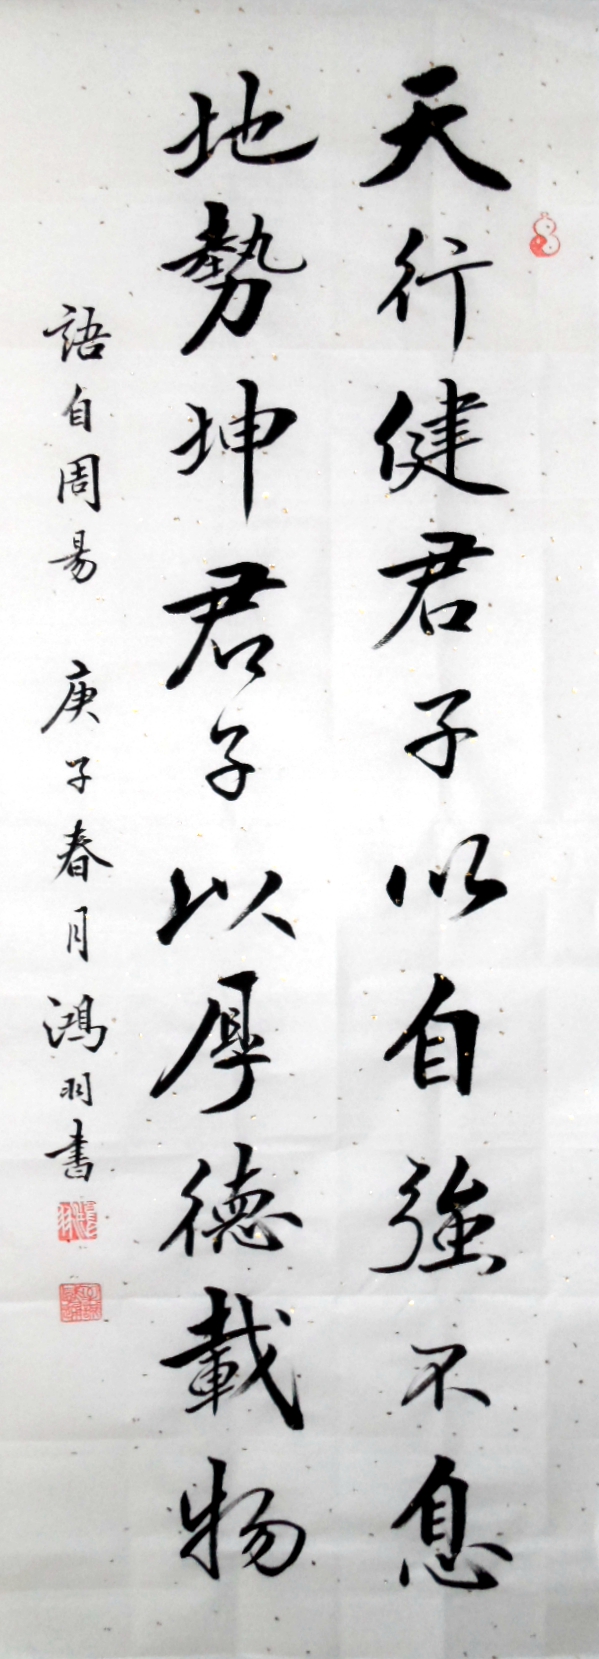 天行健君子以自強不息
地勢坤君子以厚德載物
語自周易 庚子春月鴻羽書